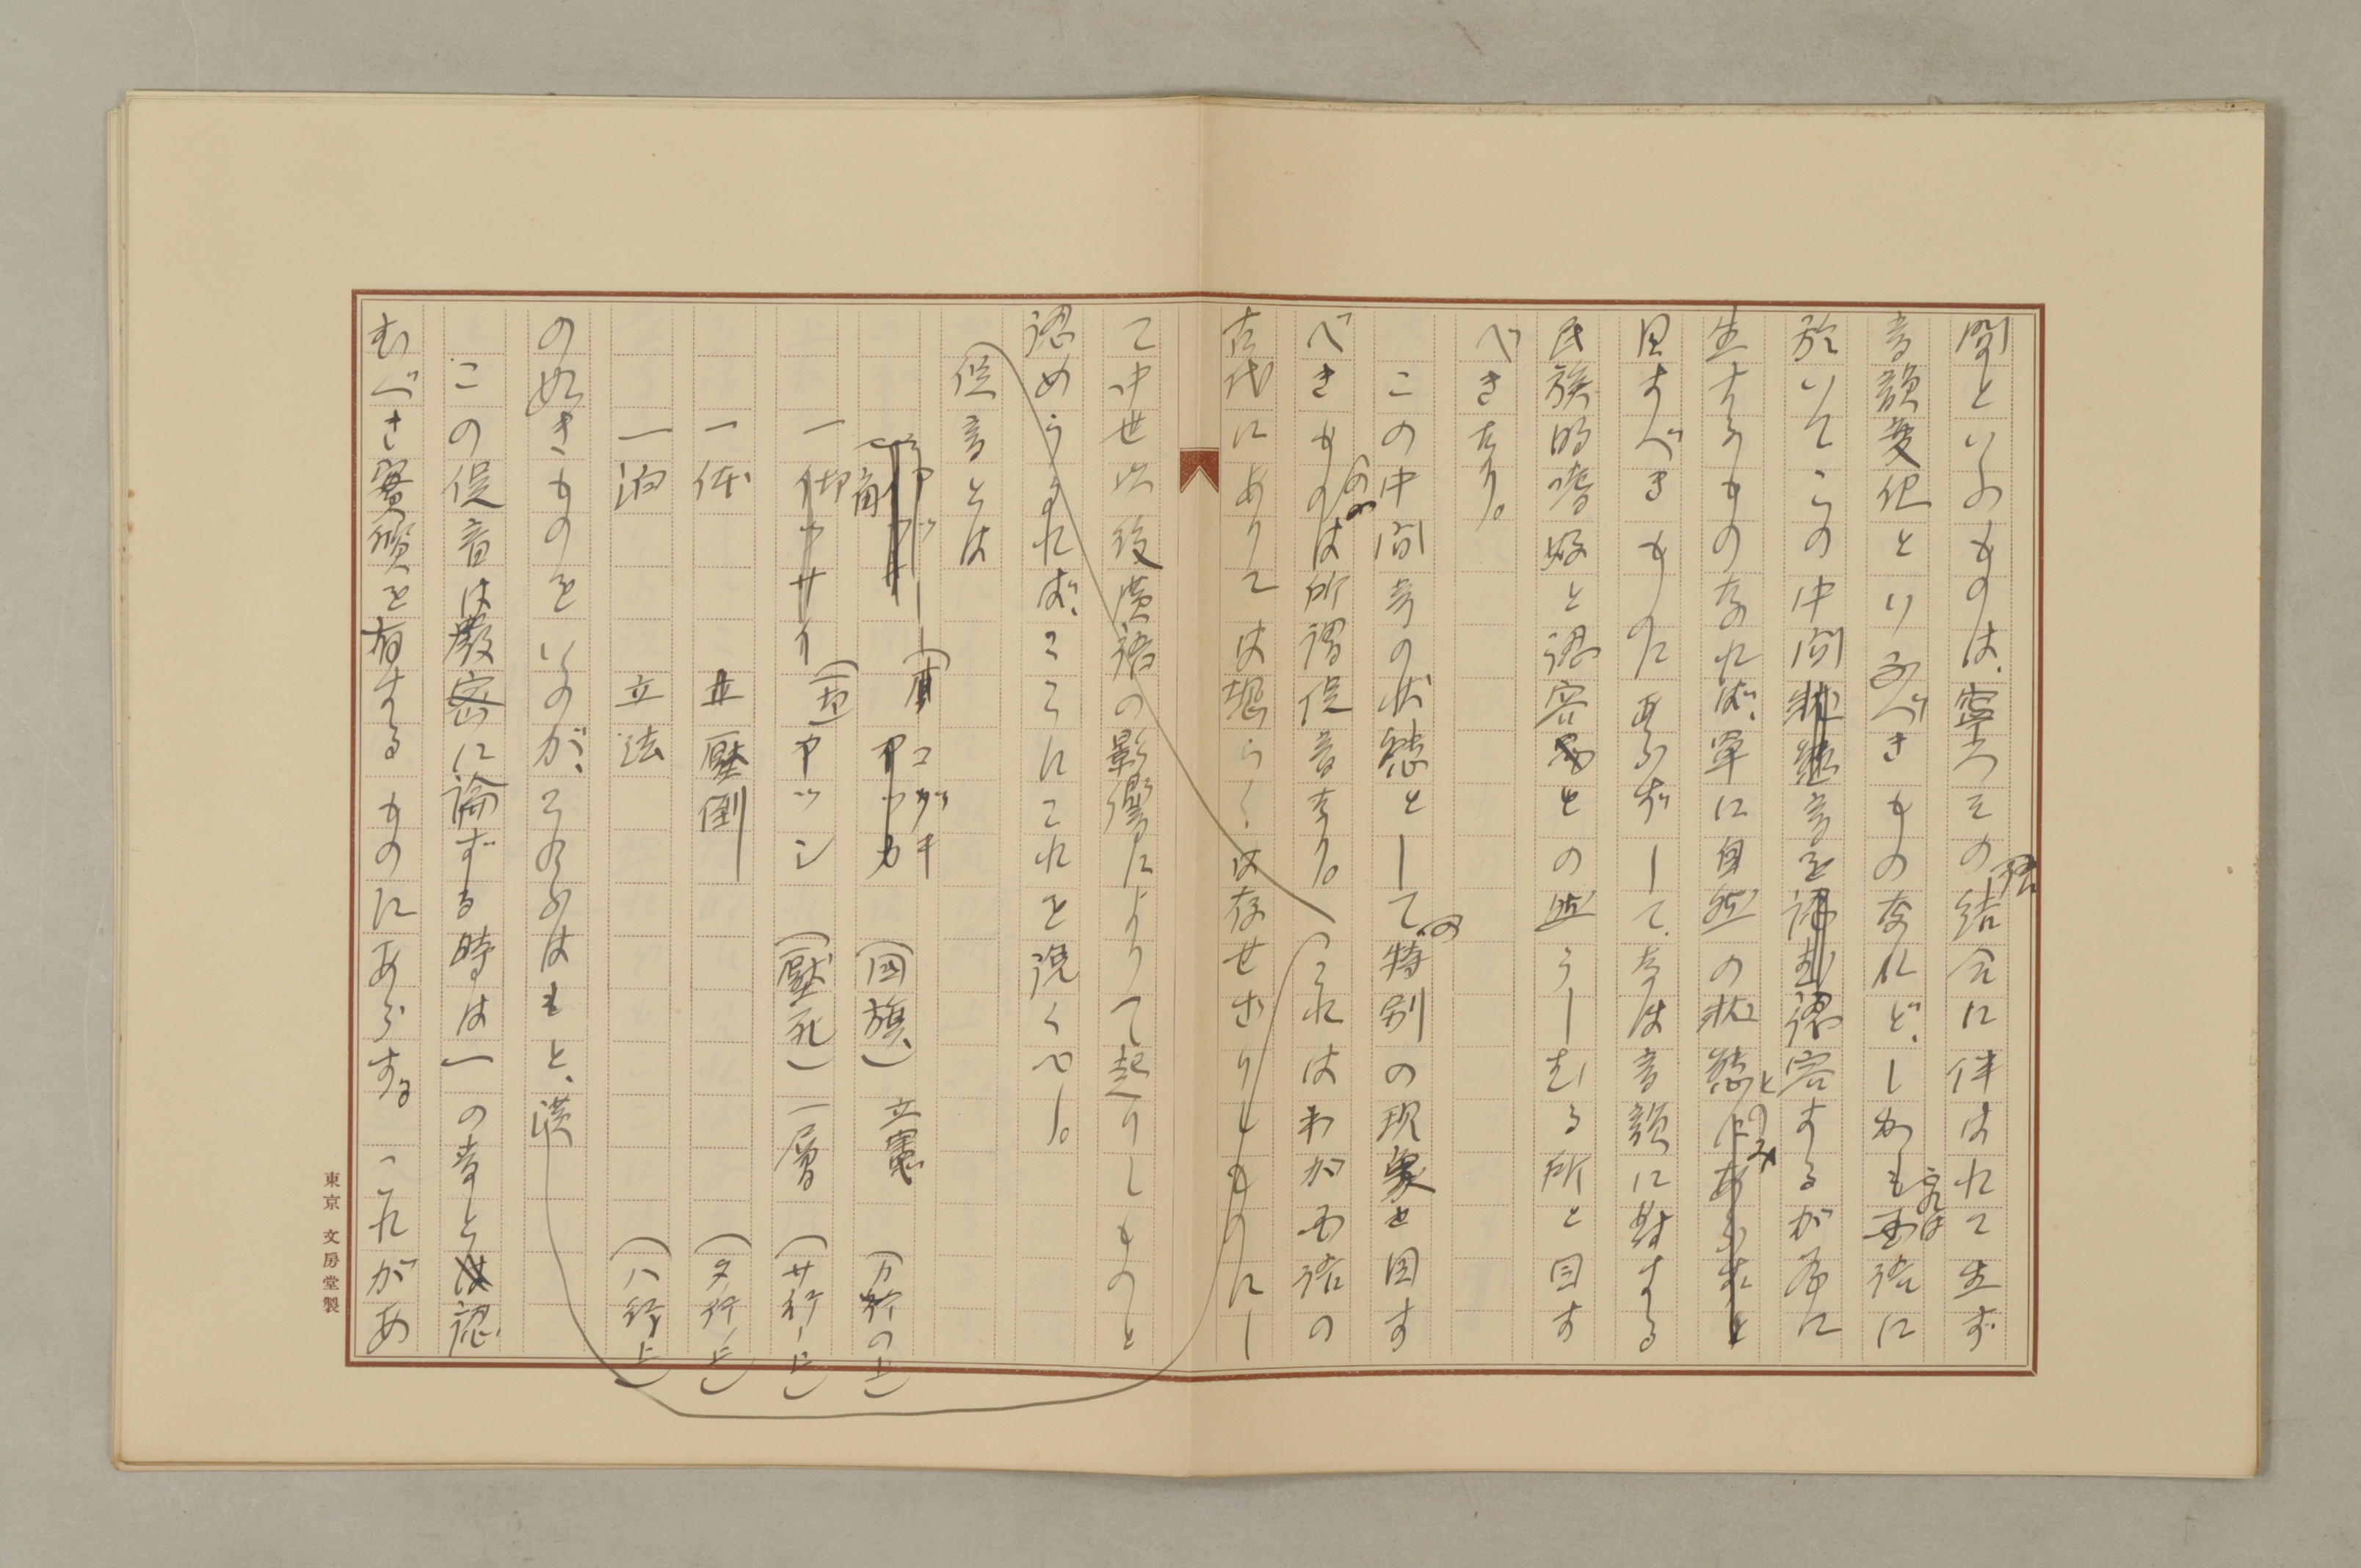 間といふものは、寧ろその語結合に伴はれて生ず
音韻変化といふべきものなれど、しかも之は国語に
於いてこの中間音を認容するが為に
生ずるものなれば、単に自然の状態とのみ
目すべきものにあらずして、そは音韻に対する
民族的嗜好と認容との然らしむる所と目す
べきなり。
この中間音の状態としての特別の現象と目す
べきものは所謂促音なり。これはわが国語の
古代にありては恐らくは存せざりしものにし
て中世以後漢語の影響によりて起りしものと
認めらるれば、ここにこれを説くべし。
促音とは
(角 (国旗) 立憲 (カ行の上)
一 (壓死) 一層 (サ行ノ上)
一体 壓倒 (タ行ノ上)
一泊 立法 (ハ行ノ上)
の如きものをいふのが、そのらはもと、漢
この促音は嚴密に論ずる時は一の音と認
むべき實質を有するものにあらず。これがあ
東京 文房堂製